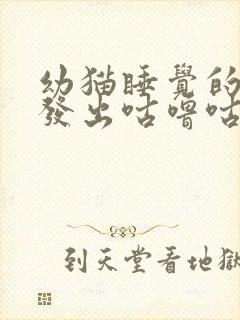 幼猫睡覺的
發出咕嚕咕
到天堂看地獄